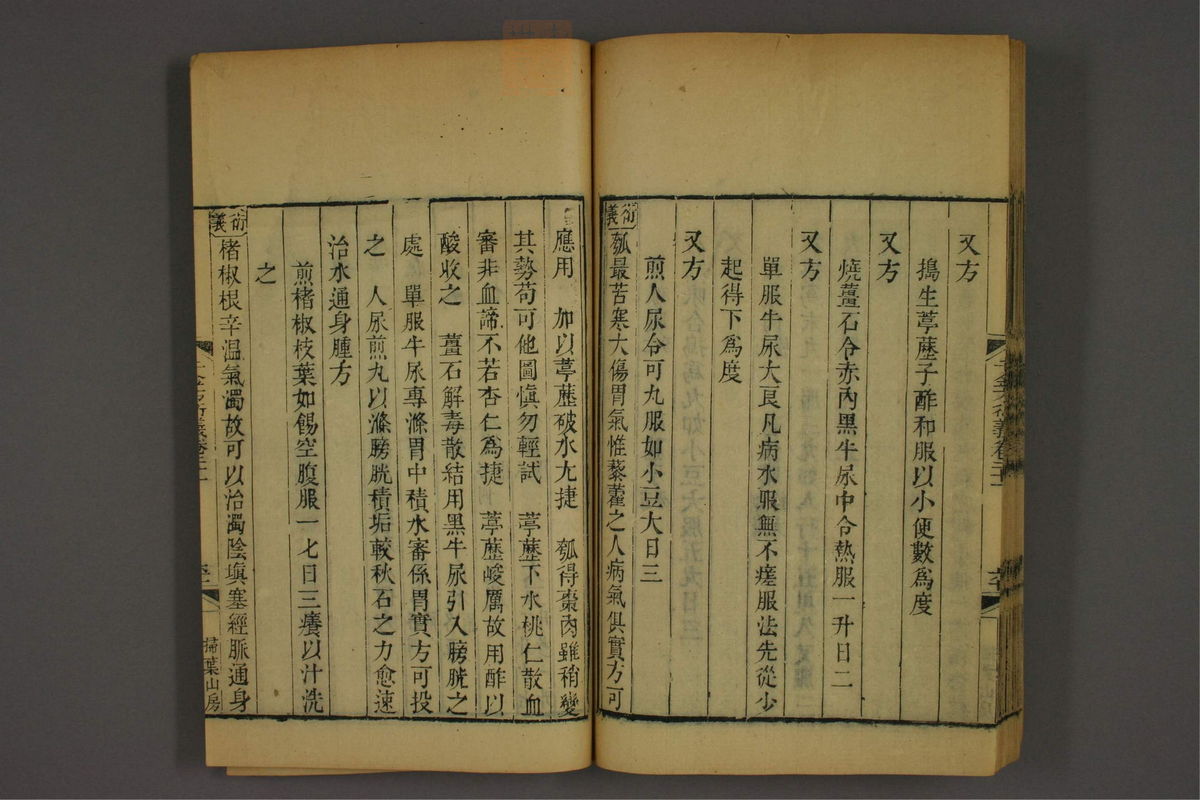 又方
搗生葶藶子醋和服以小便數爲度
又方
燒薑石令赤內黑牛尿中令熱服一升日二
又方
單服牛尿大良凡病水服無不瘥服法先從少
起得下爲度
又方
煎人尿令可丸服如小豆大日三
衍義
瓠最苦寒大傷胃氣惟藜藿之人病氣俱實方可
應用　加以葶藶破水尤捷　瓠得棗肉雖稍變
其勢苟可他圖愼勿輕試　葶藶下水桃仁散血
審非血諦不若杏仁爲捷　葶藶峻厲故用醋以
酸收之　薑石解毒散結用黑牛尿引入膀胱之
處　單服牛尿專滌胃中積水審係胃實方可投
之　人尿煎丸以滌膀胱積垢較秋石之力愈速
治水通身腫方
煎楮椒枝葉如餳空腹服一七日三癢以汁洗
之
衍義
楮椒根辛温氣濁故可以治濁陰塡塞經脈通身
千金方衍義卷二十一
掃葉山房